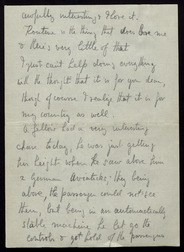 awfully interesting & I love it.
Routine is the thing that does bore me
& there's very little of that
I just can't help doing everything
with the thought that it is for you dear,
though of course I realize that it is for
my country as well.
A fellow had a very interesting
chase today, he was just getting
her height when he saw above him
a German Aviatik; they being
above, the passenger could not see
them, but being in an automatically
stable machine he let go the
controls & got hold of the passengers